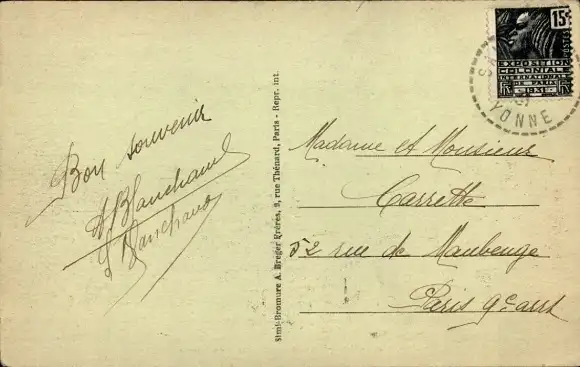 Bon souvenir
A Blanchard
Blanchard
Simili-Bromure A. Breger Frères, 9, rue Thénard, Paris - Repr. int.
15c
EXPOSITION
COLONIALE
INTERNATIONALE
DE PARIS
1931
YONNE
Madame et Monsieur
Carrette
52 rue de Maubeuge
Paris 9e arrt